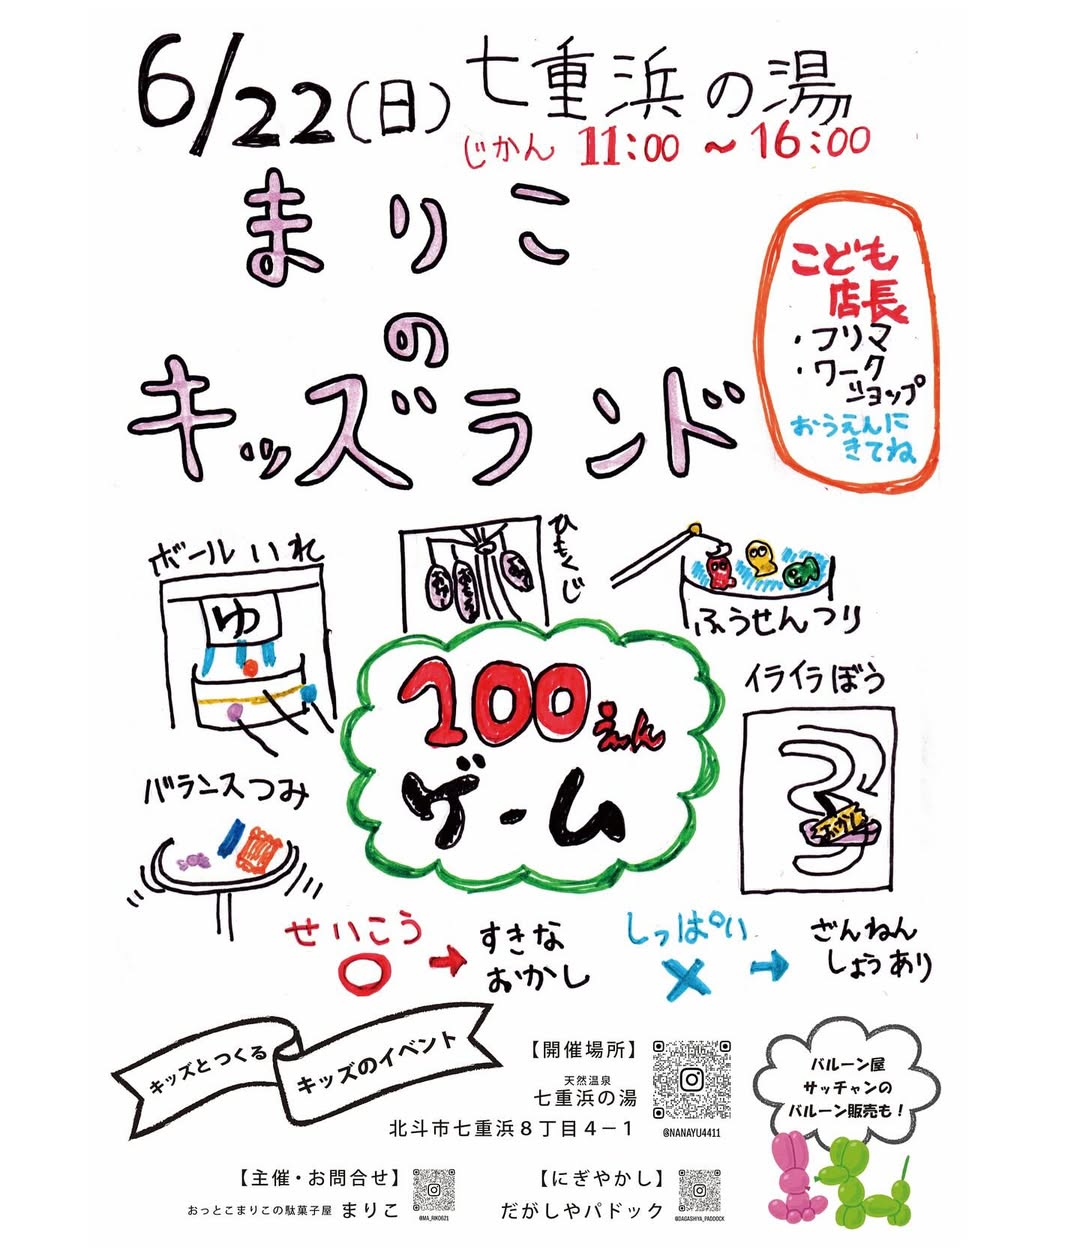 6/22(日) 七重浜の湯
じかん 11:00 ~ 16:00
まりこ
の
キッズランド
こども
店長
・フリマ
・ワーク
ショップ
おうえんに
きてね
ボールいれ
ゆ
ひもくじ
ふうせんつり
100えん
ゲーム
イライラぼう
バランスつみ
せいこう
○→
すきな
おかし
しっぱい
×→
ざんねん
しょうあり
キッズとつくる
キッズのイベント
【開催場所】
天然温泉
七重浜の湯
北斗市七重浜8丁目4-1
@NANAYU4411
バルーン屋
サッチャンの
バルーン販売も!
【主催・お問合せ】
おっとこまりこの駄菓子屋 まりこ
@MA_RIKO621
【にぎやかし】
だがしやパドック
@DAGASHIYA_PADDOCK